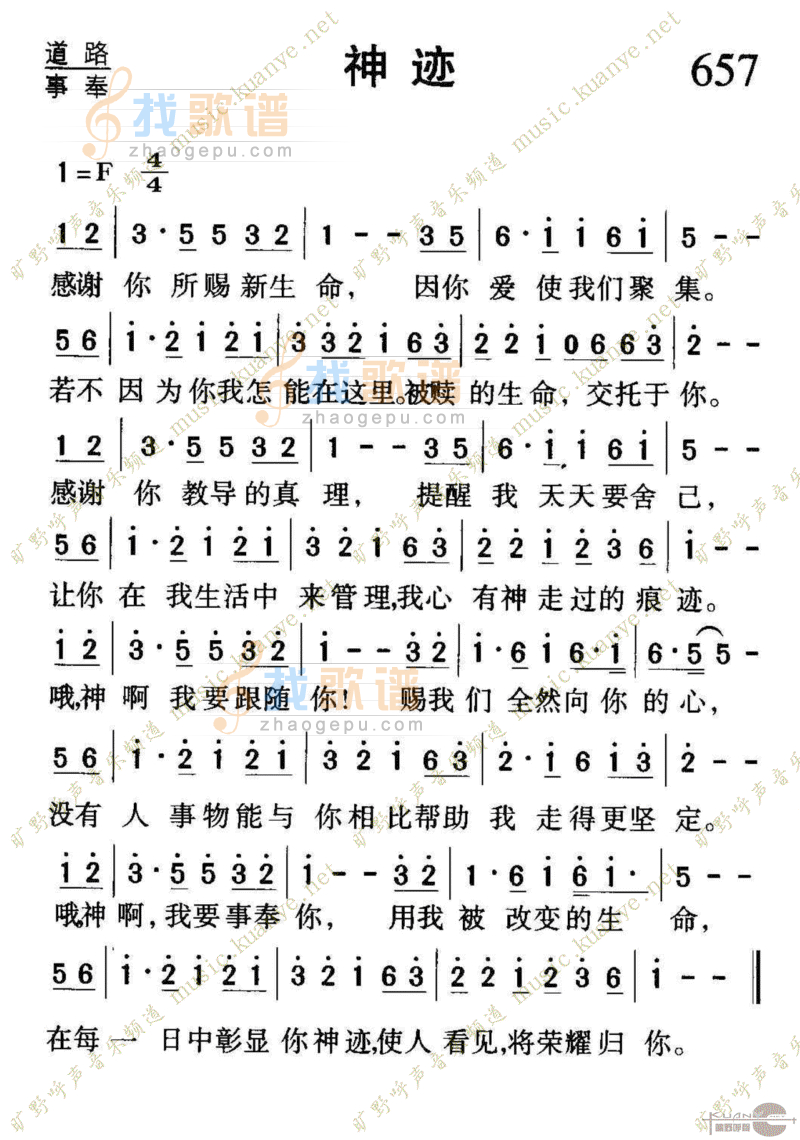 道路
事奉
神迹
657
找歌谱
zhaogepu.com
1=F 4/4
12 | 3·5 5 32 | 1 - - 35 | 6·i i 6i | 5 - -
感谢 你 所赐新生 命, 因你 爱 使我们聚 集。
56 | i·2 i 2i | 332i 63 | 22i 0663 | 2 - -
若不 因 为你我怎 能在这里。被赎 的生命, 交托于 你。
12 | 3·5 5 32 | 1 - - 35 | 6·i i 6i | 5 - -
感谢 你 教导的真 理, 提醒 我 天天要舍 己,
56 | i·2 i 2i | 32i 63 | 22i236 | i - -
让你 在 我生活中 来管理,我心 有神走过的痕 迹。
i2 | 3·5 5 32 | i - - 32 | i·6 i 6·i | 6·5 5 -
哦,神 啊 我要跟随 你! 赐我 们 全然向你 的 心,
56 | i·2 i 2i | 32i 63 | 2·2i 6i3 | 2 - -
没有 人 事物能与 你相比帮助 我 走得更坚 定。
i2 | 3·5 5 32 | i - - 32 | i·6 i 6i· | 5 - -
哦,神 啊,我要事奉 你, 用我 被 改变的生 命,
56 | i·2 i 2i | 32i 63 | 22i236 | i - - ‖
在每 一 日中彰显 你神迹,使人 看见,将荣耀归 你。
旷野呼声音乐频道 music.kuanye.net